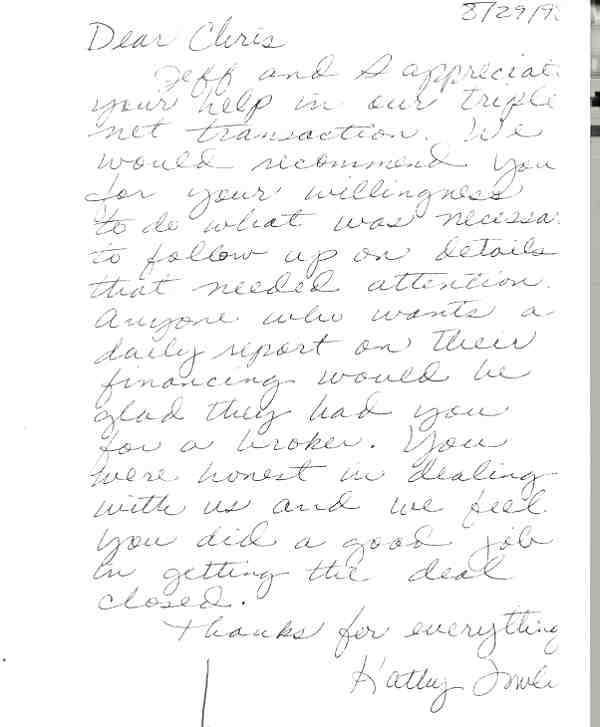 8/29/9
Dear Chris
Jeff and I appreciat
your help in our triple
net transaction. We
would recommend you
for your willingness
to do what was necessa
to follow up on details
that needed attention.
Anyone who wants a
daily report on their
financing would be
glad they had you
for a broker. You
were honest in dealing
with us and we feel
you did a good job
in getting the deal
closed.
Thanks for everything
Kathy